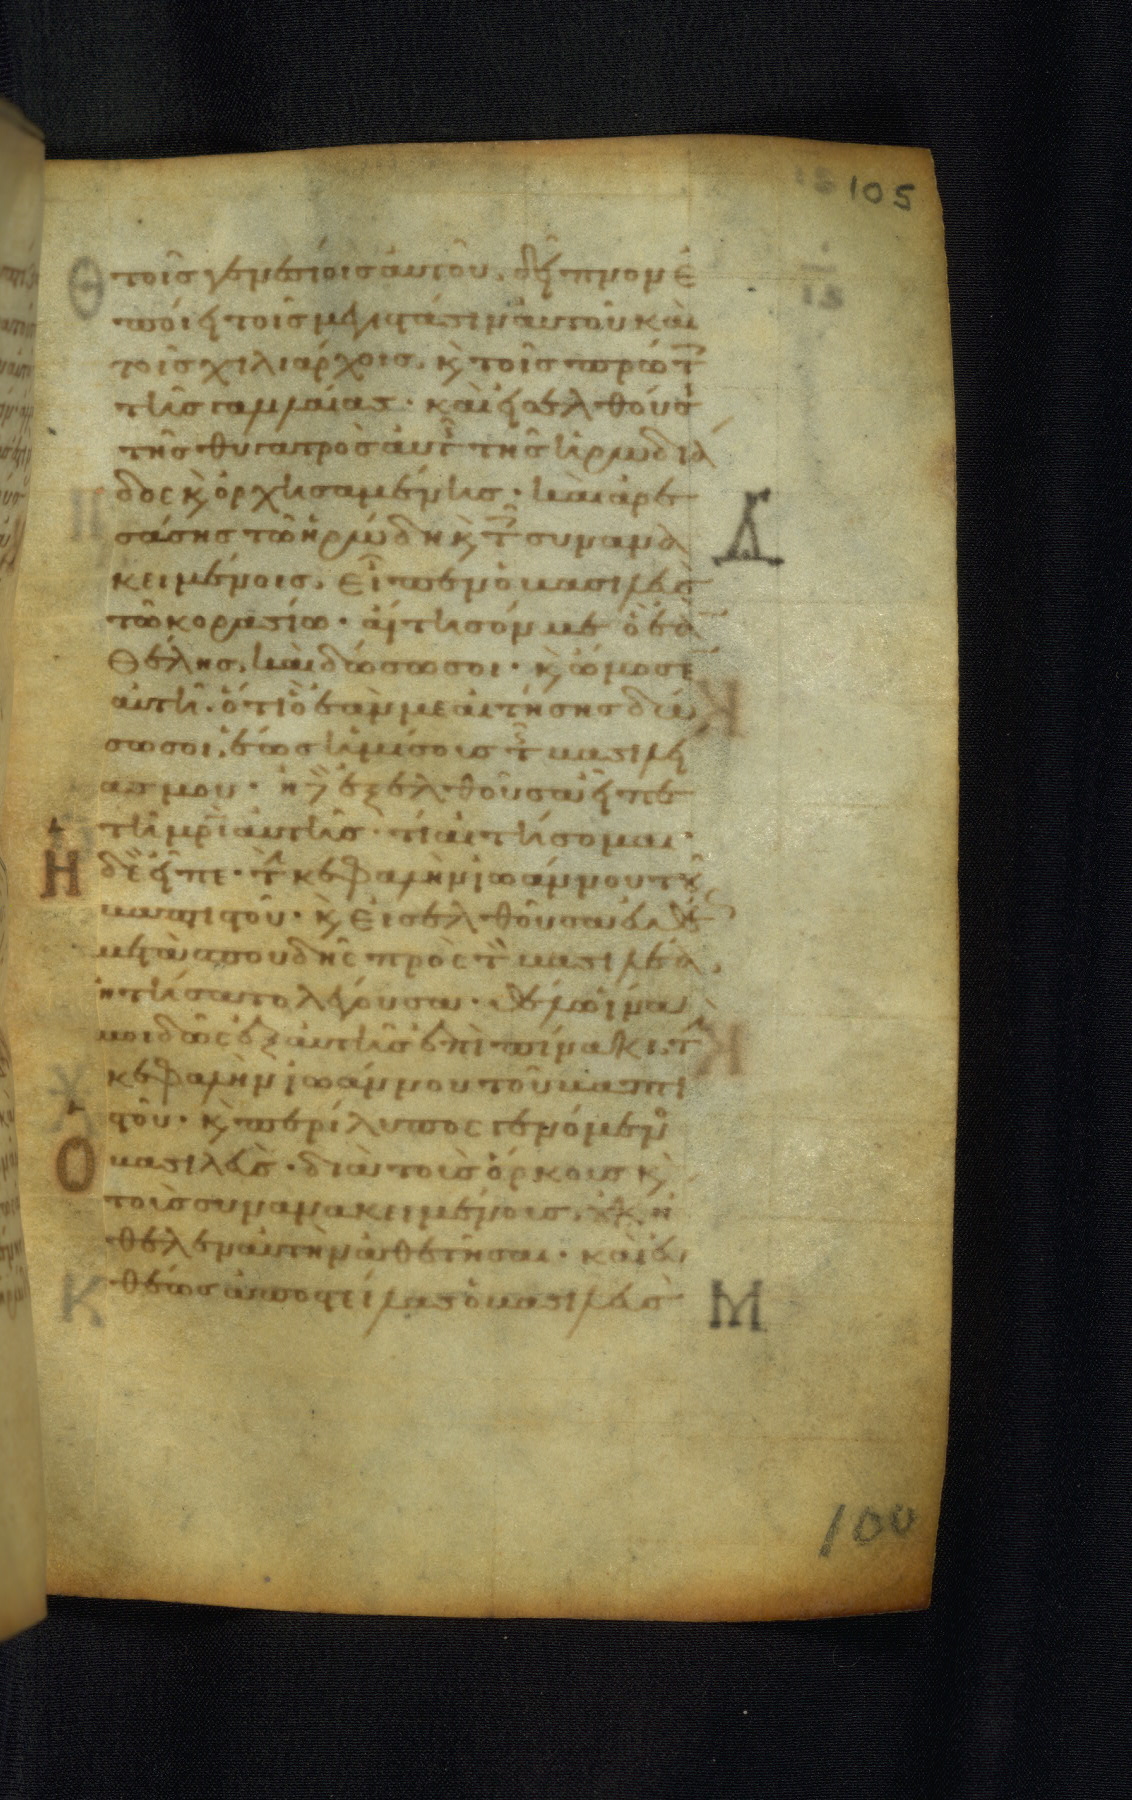 105
τοῖς γενεσίοις αὐτοῦ. δεῖπνον ἐ
ποίει τοῖς μεγιστάσιν αὐτοῦ καὶ
τοῖς χιλιάρχοις. κ τοῖς πρώτ
τῆς γαλιλαίας · καὶ εἰσελθούσ
τῆς θυγατρὸς αὐτ τῆς ἡρωδιά
δος κ ὀρχησαμένης · καὶ ἀρε
σάσης τῶ ἡρώδη κ τ συνανα
κειμένοις. εἶπεν ὁ βασιλεὺς
τῶ κορασίω · αἴτησόν με ὃ ἐὰ
θέλης, καὶ δώσω σοι · κ ὤμοσε
αὐτῆ. ὅτι ὃ ἐάν με αἰτήσης δώ
σω σοι, ἕως ἡμίσους τ βασιλεί
ας μου · ἡ δ ἐξελθοῦσα εἶπε
τῆ μρὶ αὐτῆς · τί αἰτήσομαι ·
Η δὲ εἶπε · τ κεφαλὴν ἰωάννου τ
βαπτιστοῦ · κ εἰσελθοῦσα εὐθ
μετὰ σπουδῆς πρὸς τ βασιλέα,
ἠτήσατο λέγουσα · θέλω ἵνα
μοι δῶς ἐξ αὐτῆς ἐπὶ πίνακι τ
κεφαλὴν ἰωάννου τοῦ βαπτι
στοῦ · κ περίλυπος γενόμεν
Ο βασιλεὺς · διὰ τοὺς ὅρκους κ
τοὺς συνανακειμένους. οὐκ ἠ
θέλεν αὐτὴν ἀθετῆσαι · καὶ εὐ
θέως ἀποστείλας ὁ βασιλεὺς
100